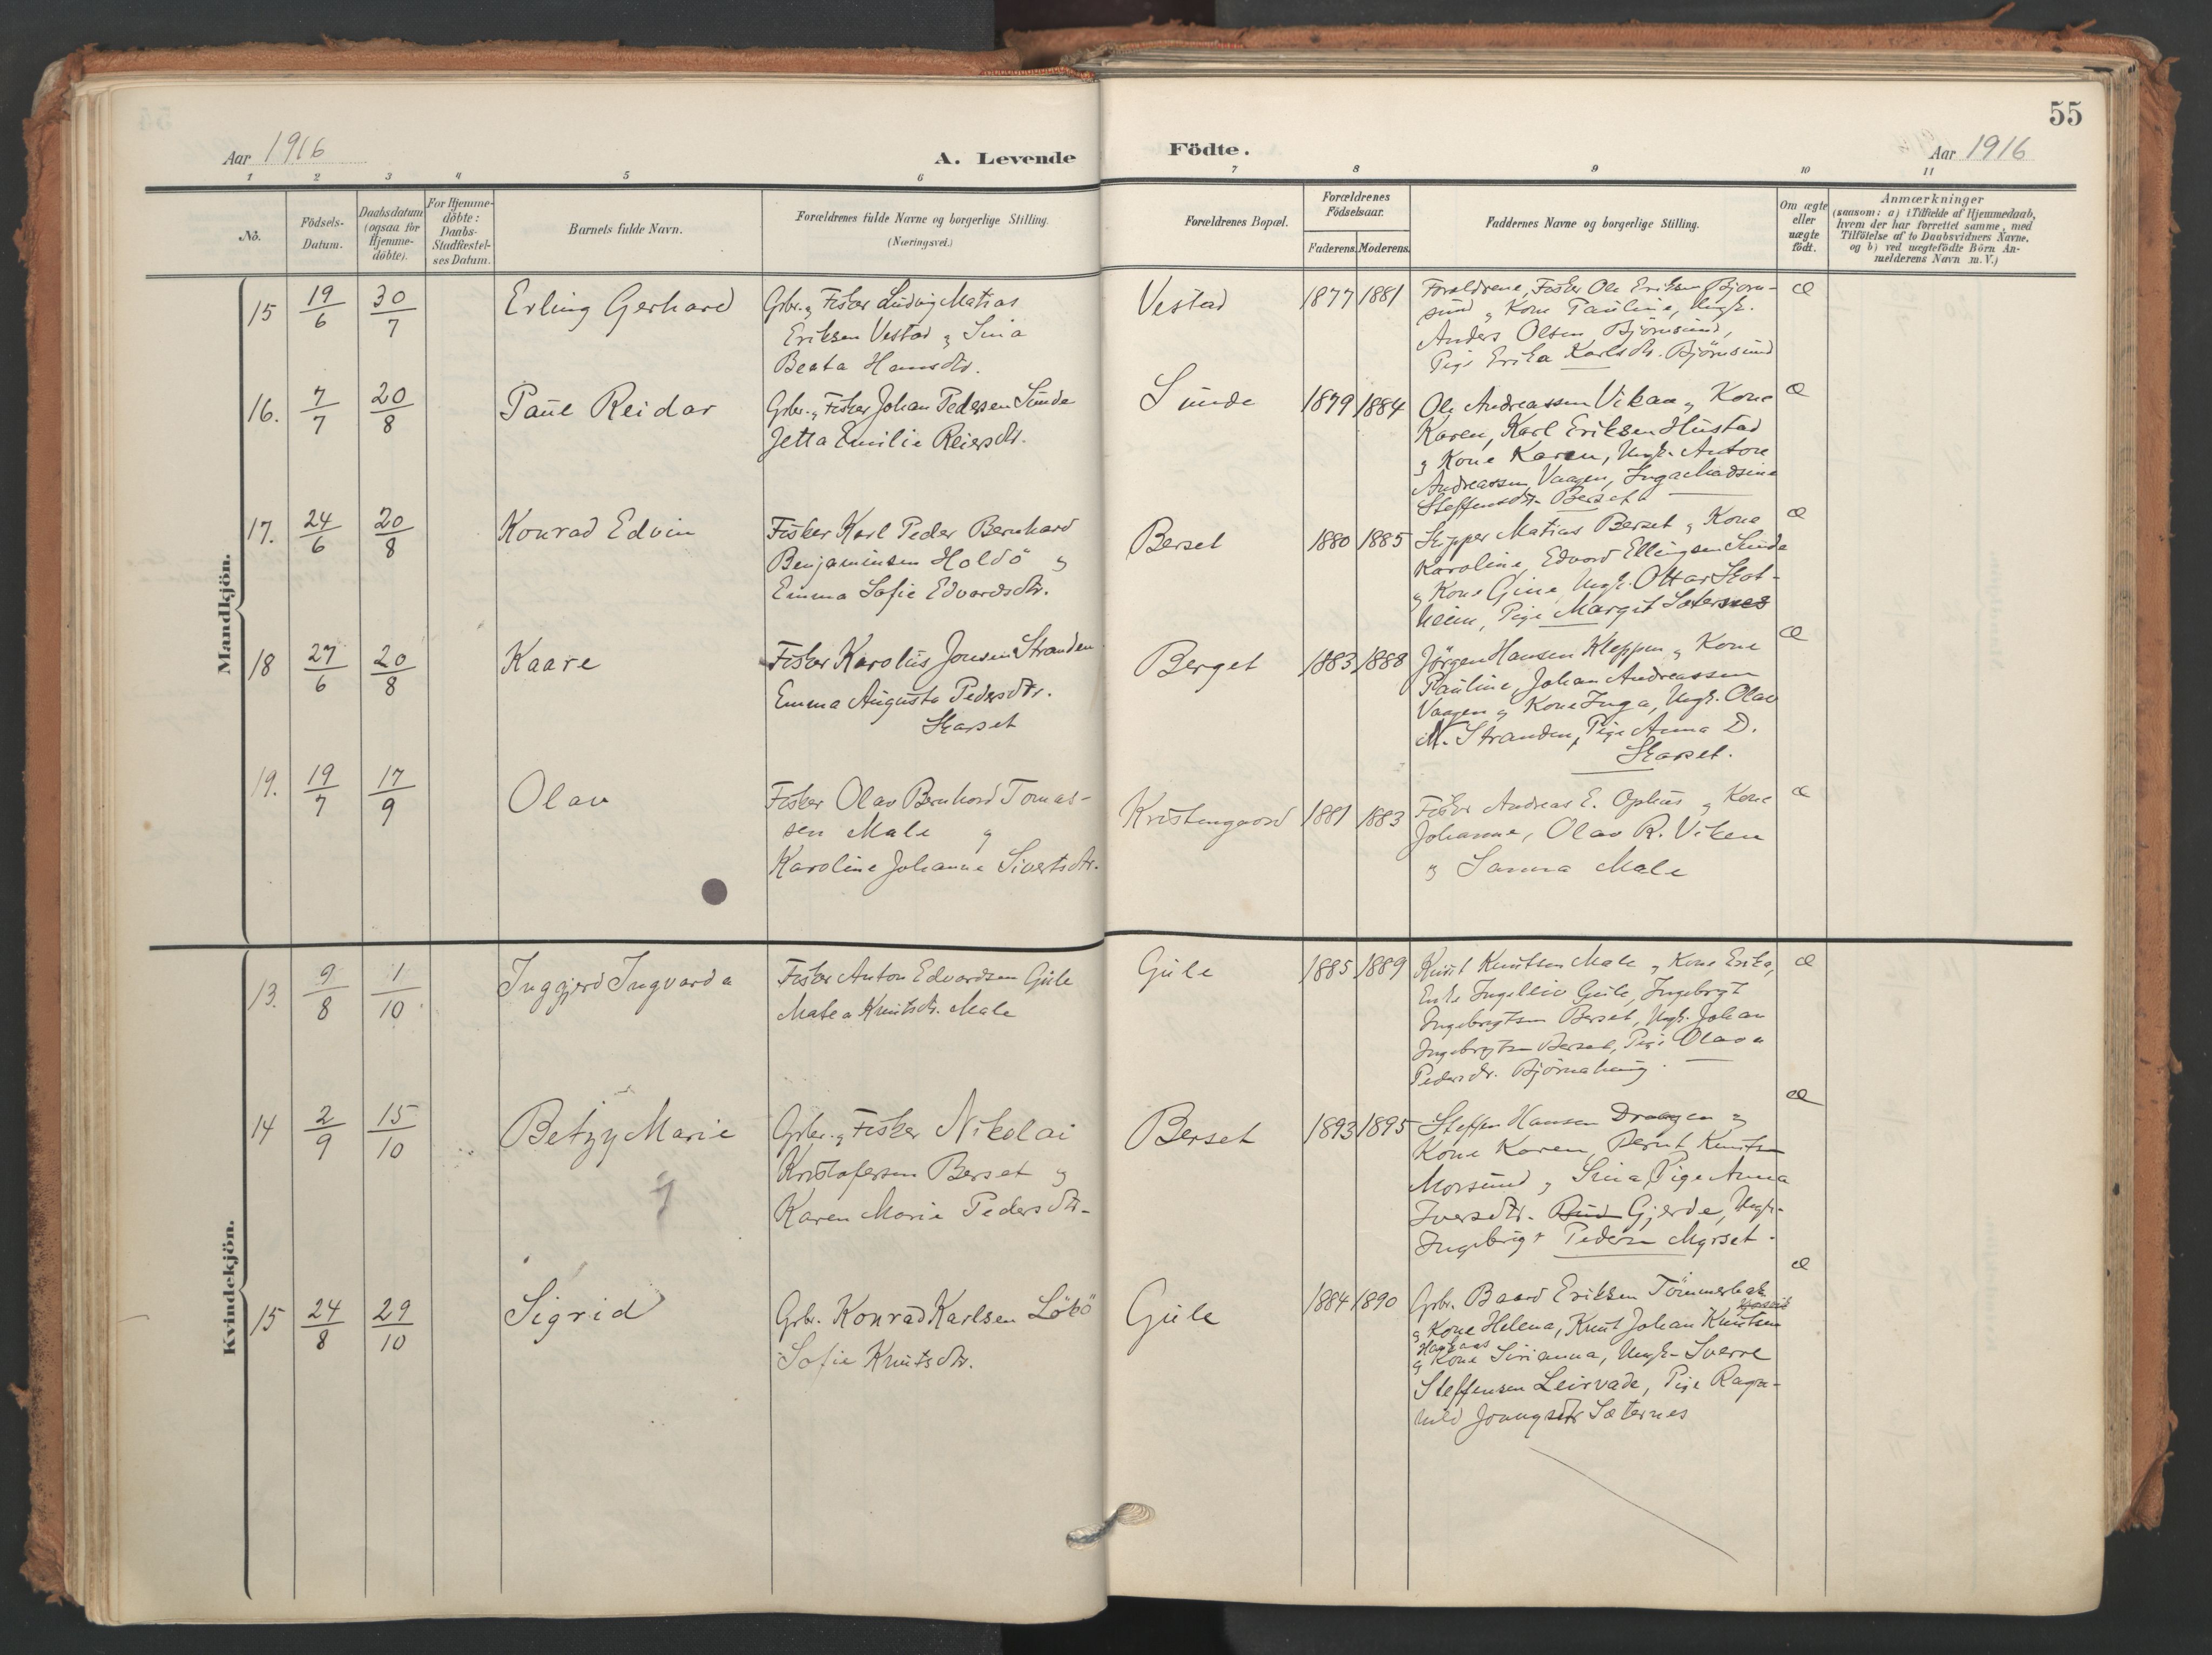 55
Aar 1916
A. Levende
Födte.
Aar 1916
1 2 3 4 5 6 7 8 9 10 11
No.
Födsels-
Datum.
Daabsdatum
(ogsaa for
Hjemme-
döbte).
For Hjemme-
döbte:
Daabs-
Stadfæstel-
ses Datum.
Barnets fulde Navn.
Forældrenes fulde Navne og borgerlige Stilling.
(Næringsvei.)
Forældrenes Bopæl.
Forældrenes
Födselsaar.
Faderens. Moderens.
Faddernes Navne og borgerlige Stilling.
Om ægte
eller
uægte
födt.
Anmærkninger
(saasom: a) i Tilfælde af Hjemmedaab,
hvem der har forrettet samme, med
Tilföielse af to Daabsvidners Navne.
og b) ved uægtefödte Börn An-
melderens Navn m. V.)
Mandkjön.
15 19/6 30/7 Erling Gerhard
Gbr. og Fisker Ludvig Matias
Eriksen Vestad og Sina
Beata Hansdtr.
Vestad 1877 1881
Forældrene, Fisker Ole Eriksen Bjørn-
sund og Kone Pauline, Ungk.
Anders Olsen Bjørnsund,
Pige Erika Karlsdtr. Bjørnsund
æ
16. 7/7 20/8 Paul Reidar
Gbr. og Fisker Johan Pedersen Sunde
Jetta Emilie Reiersdtr.
Sunde 1879 1884
Ole Andreassen Vikaa og Kone
Karen, Karl Eriksen Hustad
og Kone Karen, Ungk. Anton
Andreassen Vaagen, Inga Madsine
Steffensdtr. Berset
æ
17. 24/6 20/8 Konrad Edvin
Fisker Karl Peder Bernhard
Benjaminsen Holdö og
Emma Sofie Edvardsdtr.
Berset 1880 1885
Skipper Matias Berset og Kone
Karoline, Edvard Ellingsen Sunde
og Kone Gine, Ungk. Ottar Skot-
heim, Pige Margit Sæternes
æ
18 27/6 20/8 Kaare
Fisker Karolus Jonsen Stranden
Emma Augusta Pedersdtr.
Skarset
Berget 1883 1888
Jörgen Hansen Kleppen og Kone
Pauline, Johan Andreassen
Vaagen og Kone Inga, Ungk. Olav
M. Stranden, Pige Anna D.
Skarset.
æ
19. 19/7 17/9 Olav
Fisker Olav Bernhard Tomas-
sen Male og
Karoline Johanna Sivertsdtr.
Kristengaard 1881 1883
Fisker Andreas E. Ophus og Kone
Johanna, Olav R. Viken
og Sanna Male
æ
Kvindekjön.
13. 9/8 1/10 Inggjerd Ingvarda
Fisker Anton Edvardsen Gule
Matea Knutsdtr. Male
Gule 1885 1889
Knut Knutsen Male og Kone Erika,
Enke Ingelliv Gule, Ingebrigt
Ingebrigtsen Berset, Ungk. Johan
Ingebrigtsen Berset, Pige Olava
Pedersdtr. Bjørnehaug.
æ
14 2/9 15/10 Betzy Marie
Gbr. og Fisker Nikolai
Kristofersen Berset og
Karen Marie Pedersdtr.
Berset 1893 1895
Steffen Hansen Draagen og
Kone Karen, Bernt Knutsen
Morsund og Sina, Pige Anna
Iversdtr. Bud Gjerde, Ungk.
Ingebrigt Pedersen Myrset.
æ
15 24/8 29/10 Sigrid
Gbr. Konrad Karlsen Lökö
Sofie Knutsdtr.
Gule 1884 1890
Gbr. Baard Eriksen Tömmerbak
og Kone Helena, Knut Johan Knutsen
Haukaas
og Kone Sirianna, Ungk. Sverre
Steffensen Leirvade, Pige Ragn-
hild Sæternes
æ